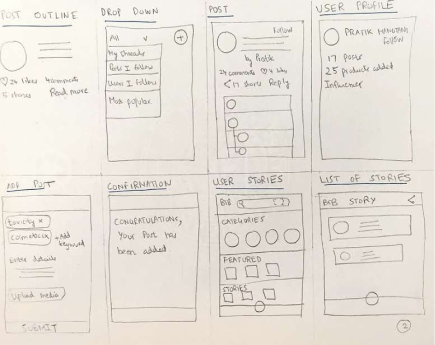 POST OUTLINE
24 likes 4 comments
5 shares Read more
DROP DOWN
All
+
My threads
Posts I follow
Users I follow
Most popular
POST
Follow
by Pratik
24 comments 4 likes
17 shares Reply
USER PROFILE
PRATIK
Follow
17 Posts
25 products added
Influencer
ADD POST
x
+ Add
keyword
Enter details
Upload media
SUBMIT
CONFIRMATION
CONGRATULATIONS,
Your Post has
been added
USER STORIES
BOB
CATEGORIES
FEATURED
STORIES
LIST OF STORIES
BOB STORY
2